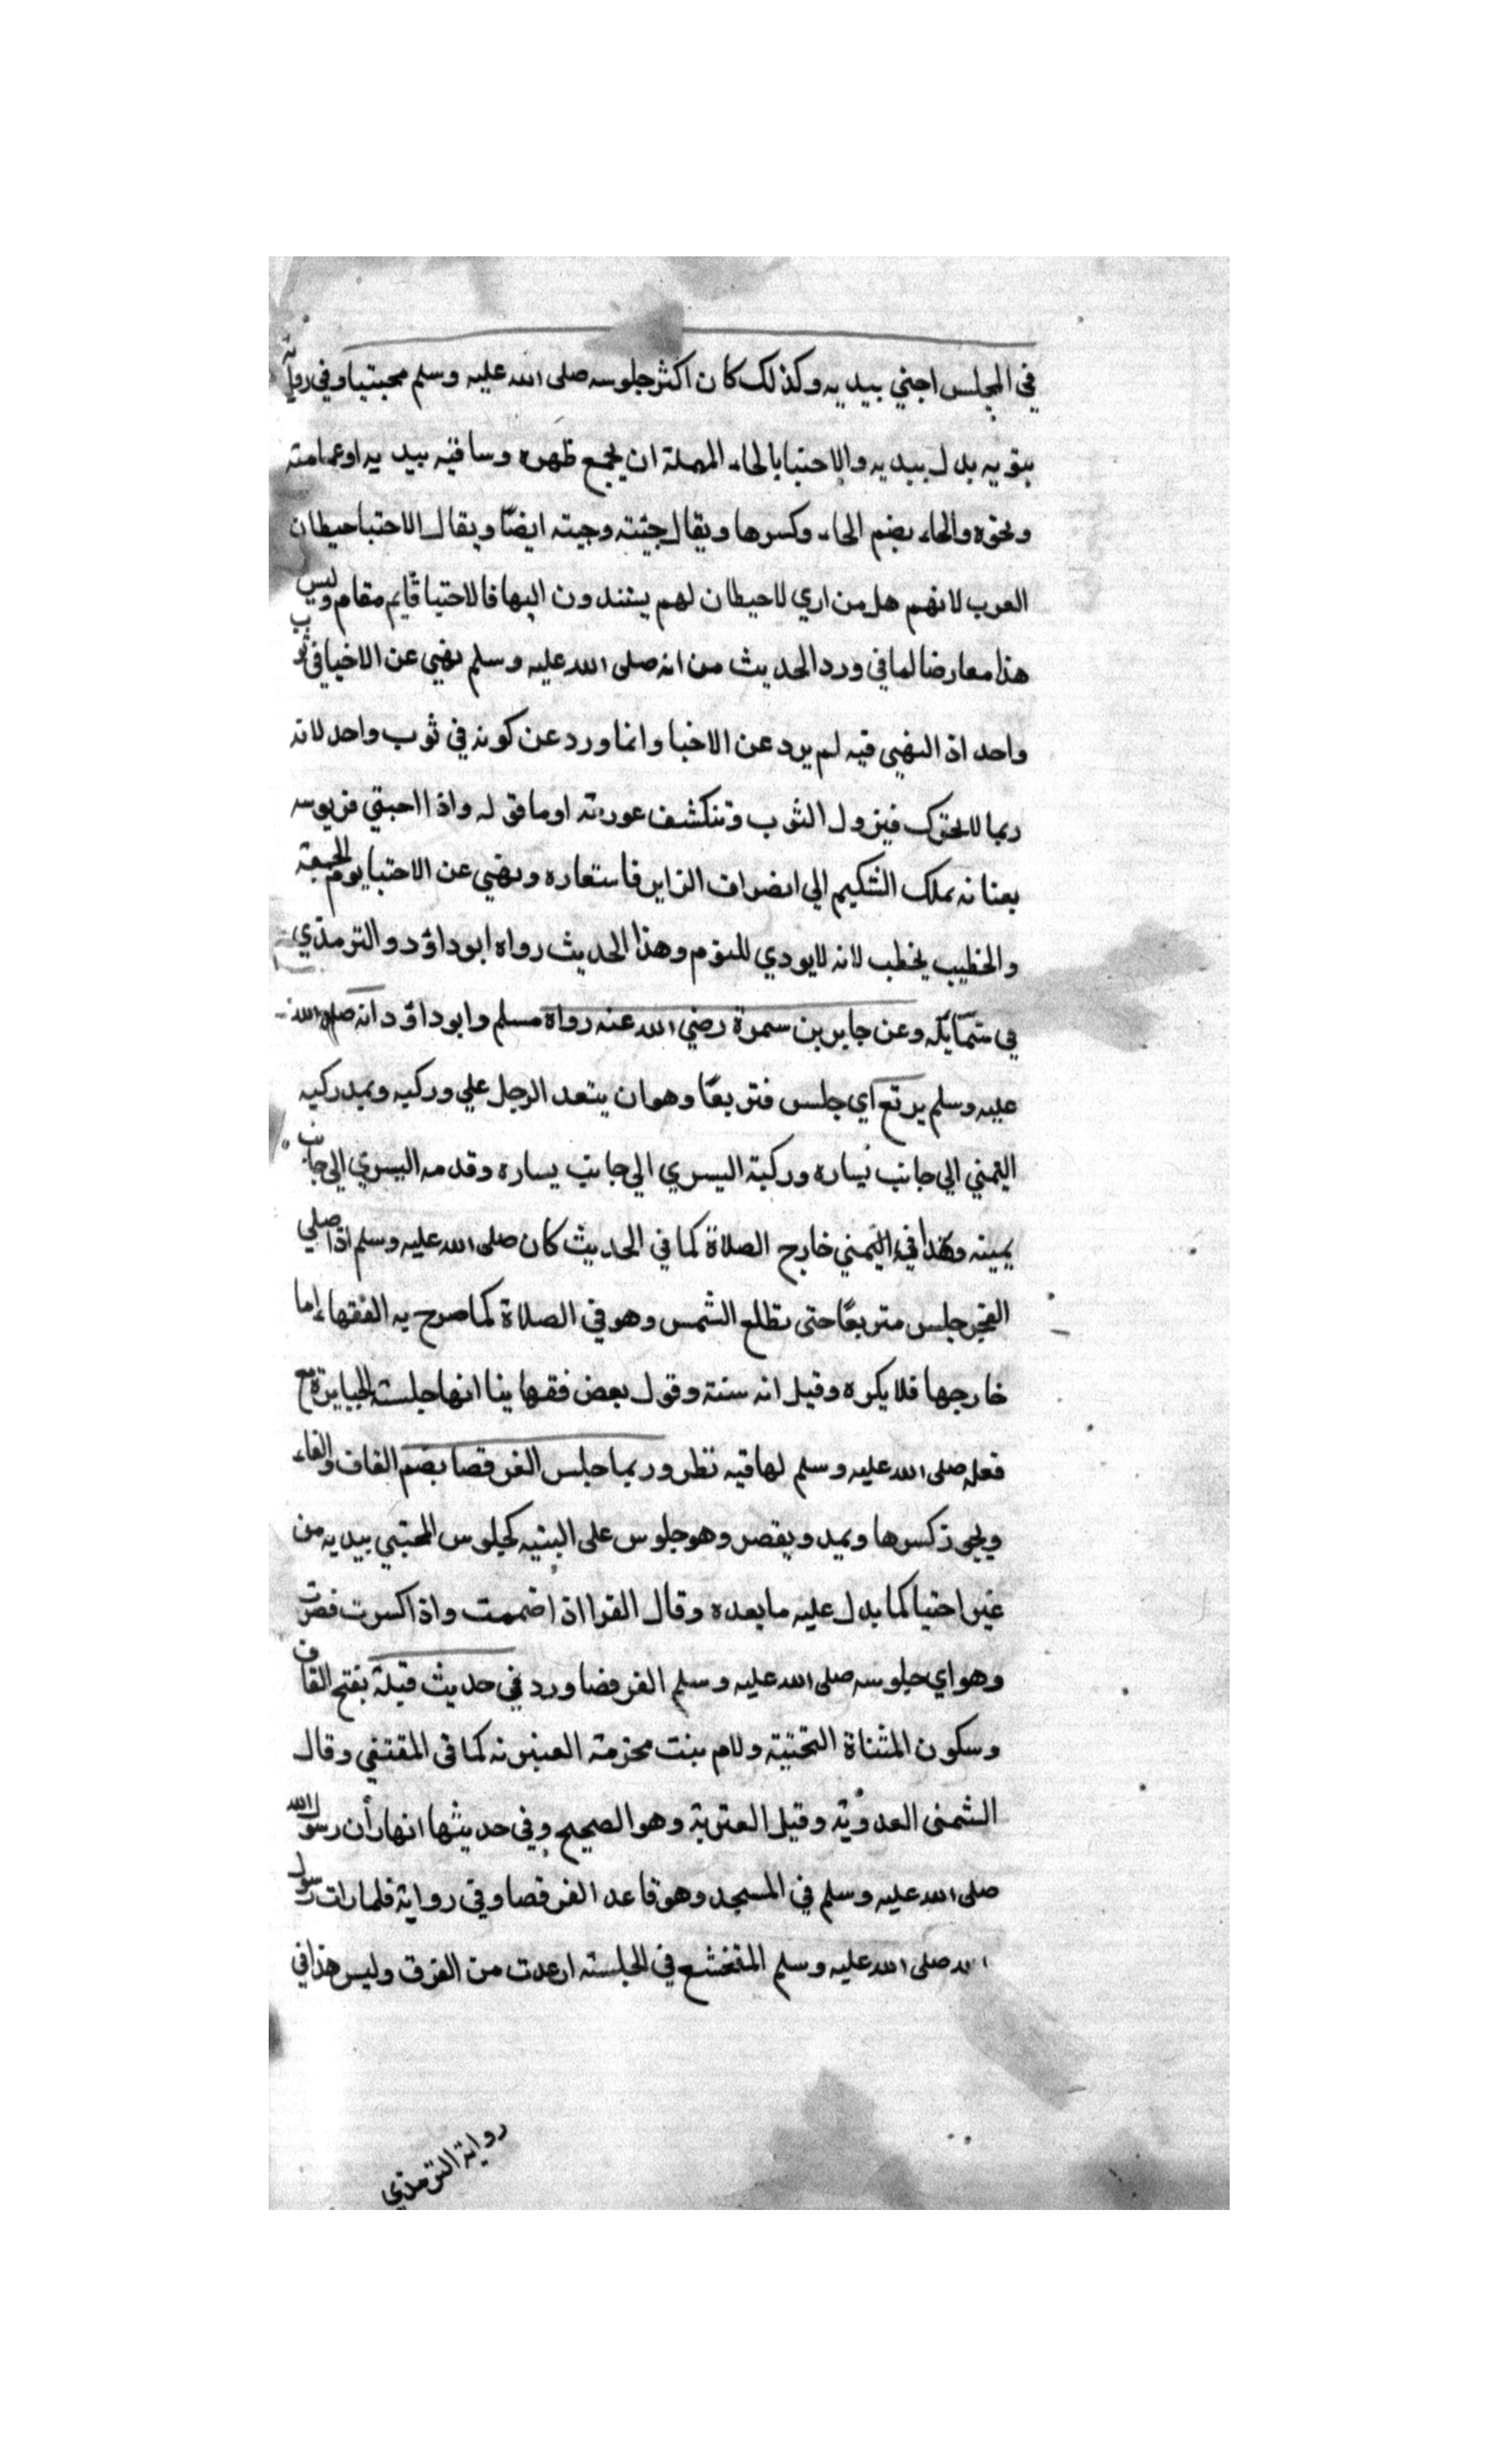 في المجلس احتبي بيديه وكذلك كان اكثر جلوسه صلى الله عليه وسلم محبتيا وفي رواية
بثوبه بدل بيديه والاحتبا بالحاء المهملة ان يجمع ظهره وساقيه بيديه او عمامته
ونحوه والحاء بضم الحاء وكسرها ويقال حبته وحيته ايضًا ويقال الاحتبا حيطان
العرب لانهم هل من اري لاحيطان لهم يستندون اليها فالاحتبا قايم مقام وليس
هذا معارضا لما في ورد الحديث من انه صلى الله عليه وسلم نهي عن الاحبا في ثوب
واحد اذ النهي فيه لم يرد عن الاحبا وانما ورد عن كونه في ثوب واحد لانه
ربما لا تحرك فيزول الثوب وتنكشف عورته اوما قوله واذا احبتي
بملك الشكيم الي انصراف الزاير فاستعاره ونهي عن الاحتبا يوم الجمعة
والخطيب يخطب لانه لا يودي للنوم وهذا الحديث رواه ابو داؤد والترمذي
في شمايله وعن جابر بن سمرة رضي الله عنه رواه مسلم وابو داؤد انه صلى الله
عليه وسلم يرتع اي جلس فتربعًا وهو ان يتعد الرجل علي وركيه ويمد ركبه
اليمني الي جانب يساره وركبة اليسري الي جانب يساره وقدمه اليسري الي جانب
يمينه وهذا في اليمني خارج الصلاة كما في الحديث كان صلى الله عليه وسلم اذا صلي
الفجر جلس متربعًا حتى تطلع الشمس وهو في الصلاة كما صرح به الفقها اما
خارجها فلا يكره وقيل انه سنة وقول بعض فقهاينا انها جلسة الجبابرة مع
فعله صلى الله عليه وسلم لها فيه نظر وربما جلس القرفصا بضم القاف والفاء
ويجوز كسرها ويمد ويقصر وهو جلوس على اليتيه كجلوس المحتبي بيديه من
غير احتبا كما يدل عليه ما بعده وقال الفرا اذا ضممت واذا كسرت قصرت
وهو اي جلوسه صلى الله عليه وسلم القرفصا ورد في حديث قيلة بفتح القاف
وسكون المثناة التحتية ولام بنت مخزمة العنبرية كما في المقتفي وقال
الشمني العدوية وقيل العنزية وهو الصحيح وفي حديثها انها رأت رسول الله
صلى الله عليه وسلم في المسجد وهو قاعد القرفصا وفي رواية فلما رات رسول
الله صلى الله عليه وسلم المتخشع في الجلسة ارعدت من الفرق وليس هذا في
رواية الترمذي